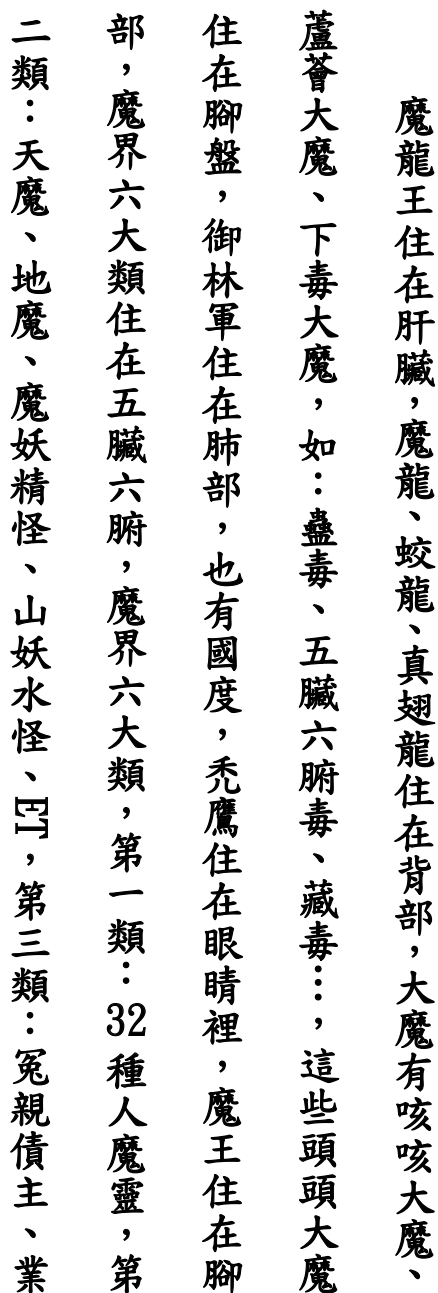 魔龍王住在肝臟，魔龍、蛟龍、真翅龍住在背部，大魔有咳咳大魔、
蘆薈大魔、下毒大魔，如：蠱毒、五臟六腑毒、藏毒…，這些頭頭大魔
住在腳盤，御林軍住在肺部，也有國度，禿鷹住在眼睛裡，魔王住在腳
部，魔界六大類住在五臟六腑，魔界六大類，第一類：32種人魔靈，第
二類：天魔、地魔、魔妖精怪、山妖水怪、ET，第三類：冤親債主、業